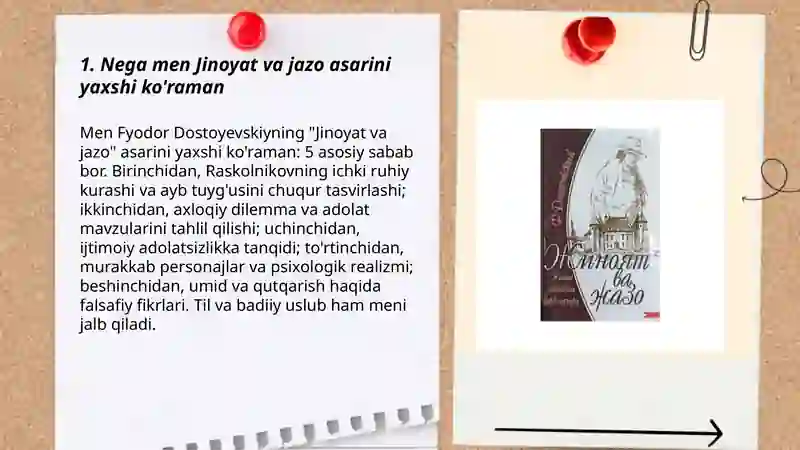 1. Nega men Jinoyat va jazo asarini
yaxshi ko'raman
Men Fyodor Dostoyevskiyning "Jinoyat va
jazo" asarini yaxshi ko'raman: 5 asosiy sabab
bor. Birinchidan, Raskolnikovning ichki ruhiy
kurashi va ayb tuyg'usini chuqur tasvirlashi;
ikkinchidan, axloqiy dilemma va adolat
mavzularini tahlil qilishi; uchinchidan,
ijtimoiy adolatsizlikka tanqidi; to'rtinchidan,
murakkab personajlar va psixologik realizmi;
beshinchidan, umid va qutqarish haqida
falsafiy fikrlari. Til va badiiy uslub ham meni
jalb qiladi.
Жиноят
ва
жазо